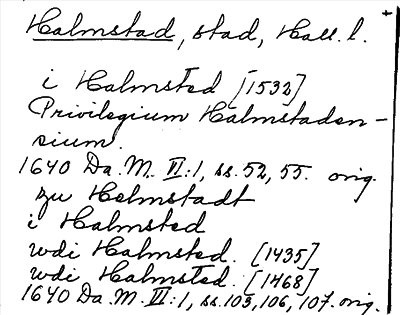 Halmstad, stad, Hall. l. +
i Halmsted [1532]
Privilegium Halmstaden-
sium.
1640 Da. M. VI:1, ss. 52, 55. orig.
zu Helmstadt
i Halmsted
wdi Halmsted. [1435]
wdi Halmsted. [1468]
1640 Da. M. VI:1, ss. 103, 106, 107. orig.